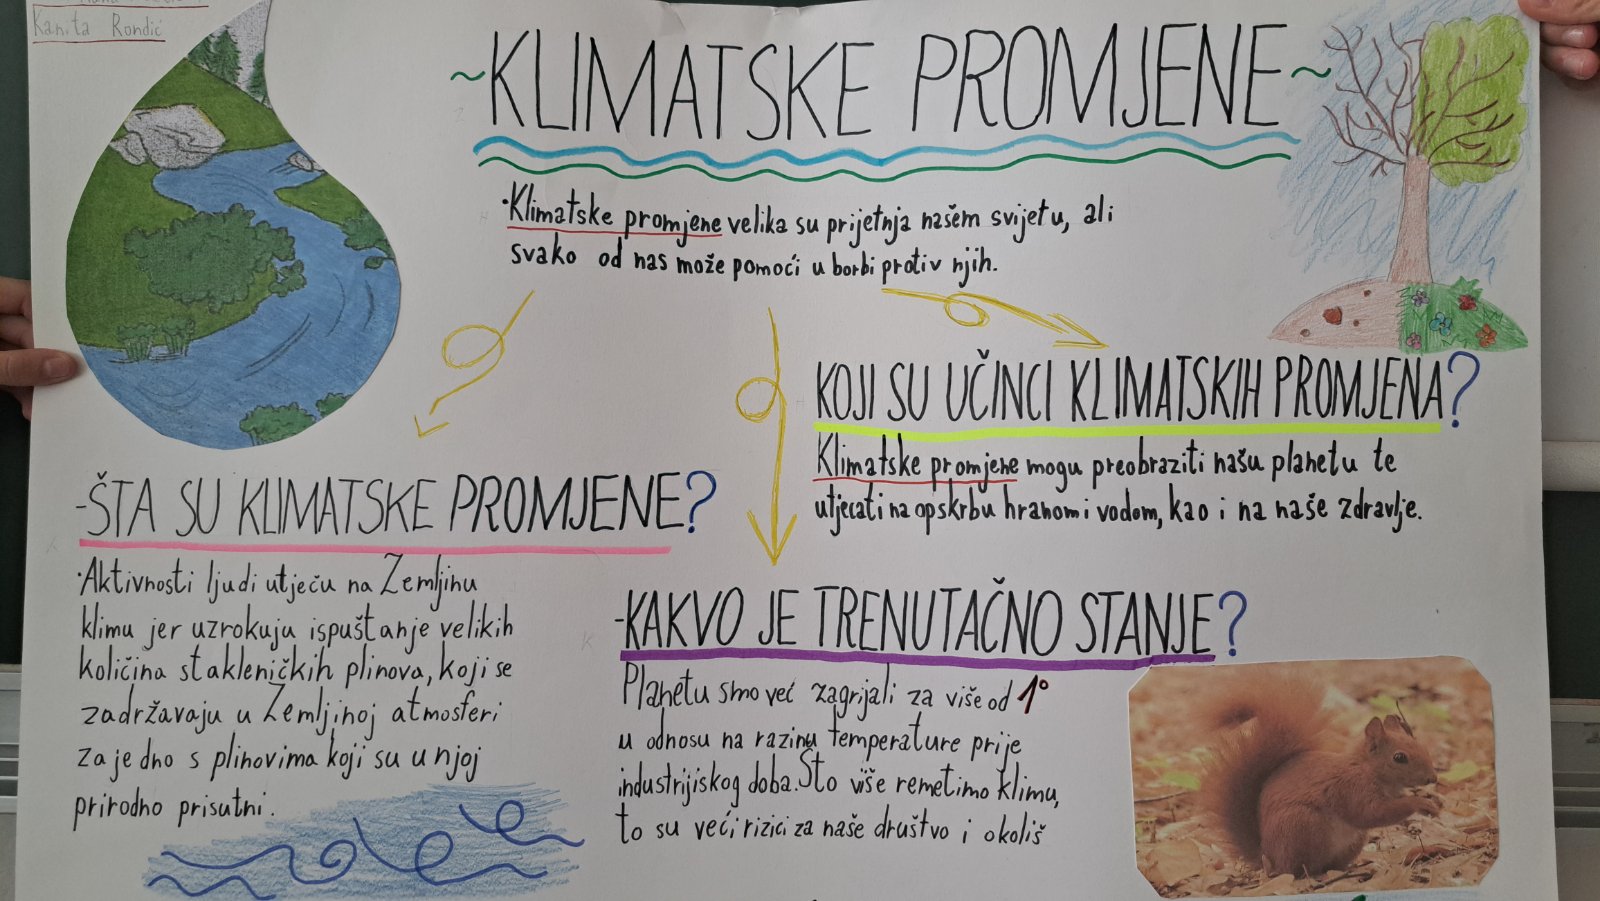 Kanita Rondić
~KLIMATSKE PROMJENE~
·Klimatske promjene velika su prijetnja našem svijetu, ali
svako od nas može pomoći u borbi protiv njih.
KOJI SU UČINCI KLIMATSKIH PROMJENA?
Klimatske promjene mogu preobraziti našu planetu te
utjecati na opskrbu hranom i vodom, kao i na naše zdravlje.
-ŠTA SU KLIMATSKE PROMJENE?
·Aktivnosti ljudi utječu na Zemljinu
klimu jer uzrokuju ispuštanje velikih
količina stakleničkih plinova, koji se
zadržavaju u Zemljinoj atmosferi
zajedno s plinovima koji su u njoj
prirodno prisutni.
-KAKVO JE TRENUTAČNO STANJE?
Planetu smo već zagrijali za više od 1°
u odnosu na razinu temperature prije
industrijiskog doba. Što više remetimo klimu,
to su veći rizici za naše društvo i okoliš